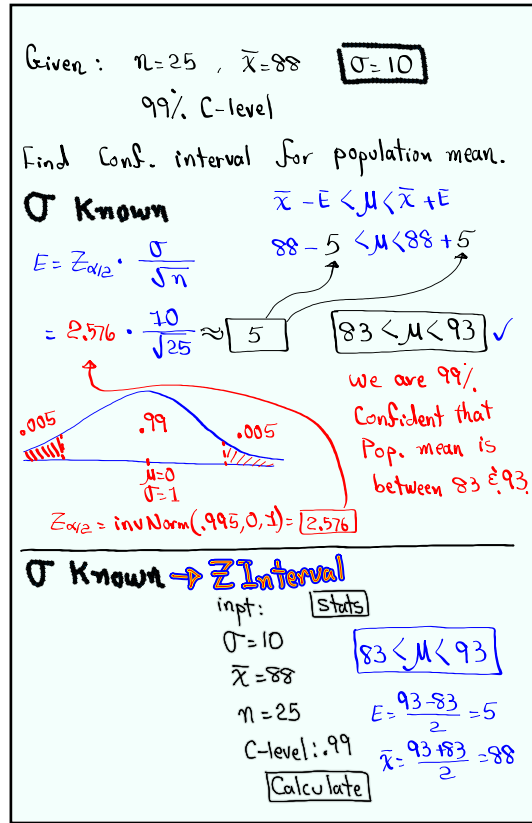 Given: n=25, x̄=88 σ=10
99% C-level
Find Conf. interval for population mean.
σ Known
x̄ - E < μ < x̄ + E
E = Zα/2 · σ/√n
88 - 5 < μ < 88 + 5
= 2.576 · 10/√25 ≈ 5
83 < μ < 93 ✓
we are 99%
Confident that
Pop. mean is
between 83 & 93
.005 .99 .005
μ=0
σ=1
Zα/2 = invNorm(.995,0,1) = 2.576
σ Known → Z Interval
inpt: Stats
σ=10
x̄=88
n=25
C-level:.99
Calculate
83 < μ < 93
E = 93-83/2 = 5
x̄ = 93+83/2 = 88